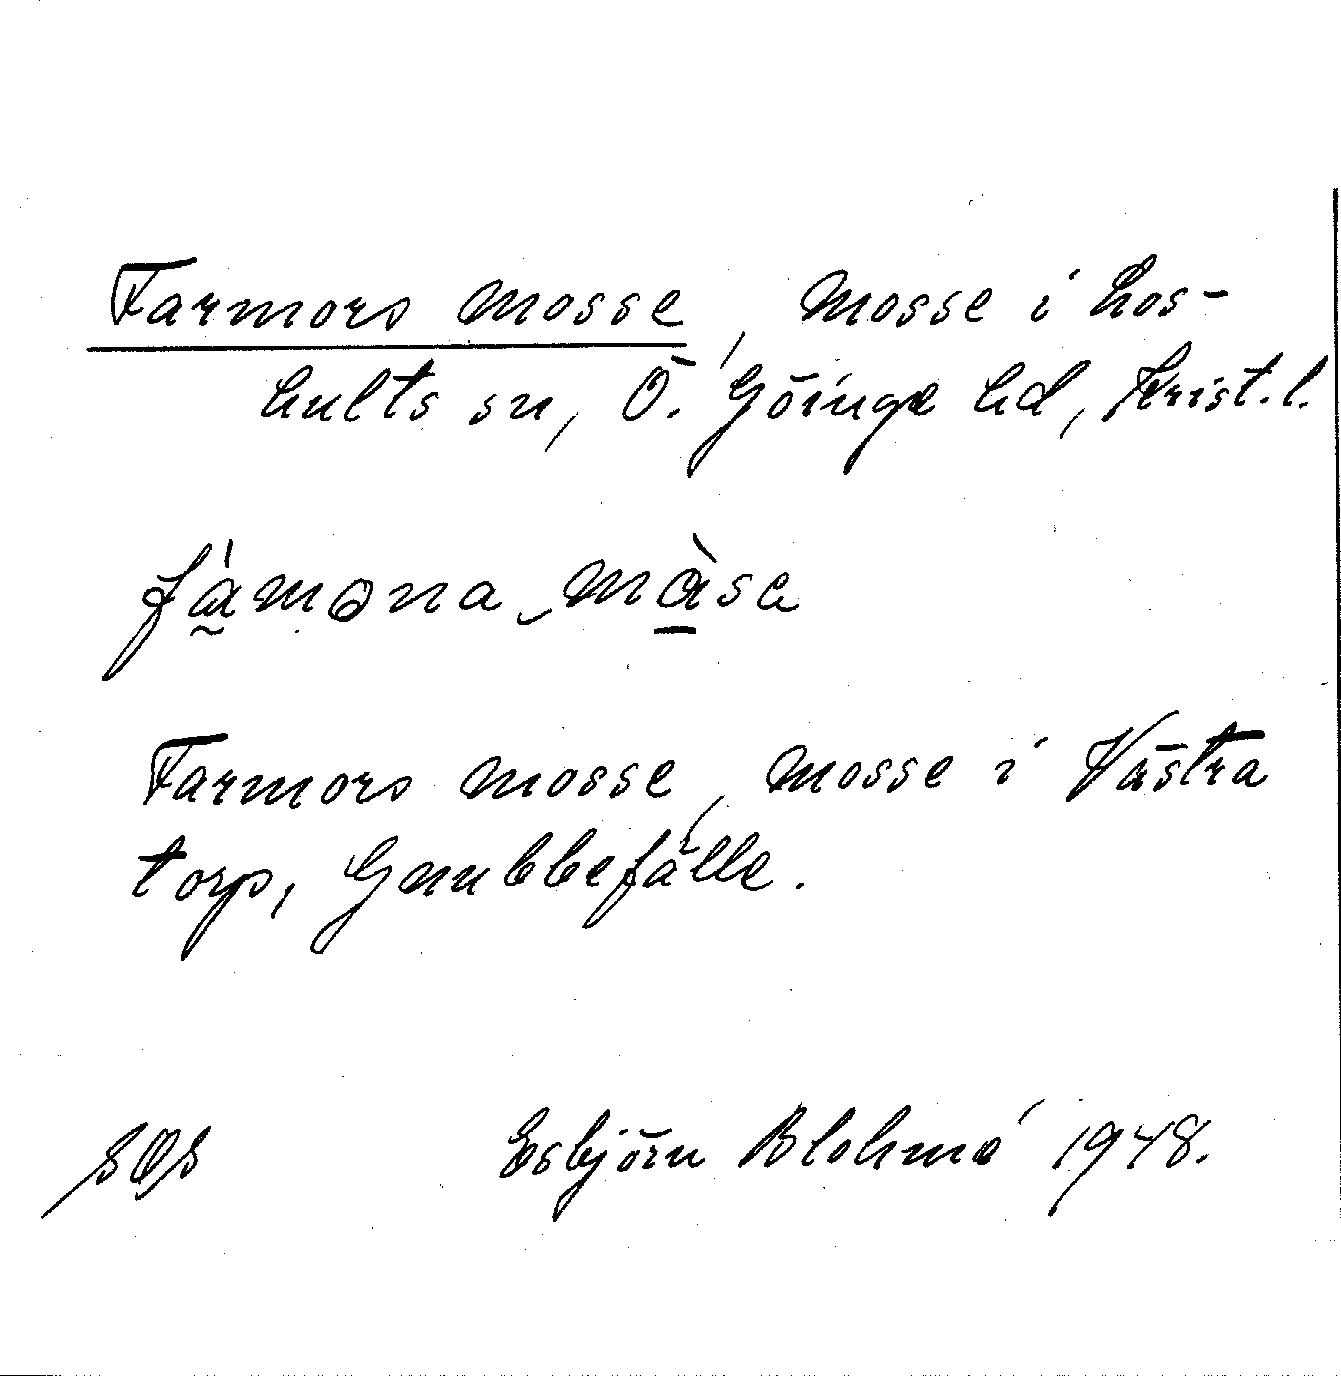 Farmors mosse, mosse i Los-
hults sn, Ö. Göinge hd, Krist. l.
fàməna ‿ màsa
Farmors mosse, mosse i Västra
torp, Gnubbefälle.
Esbjörn Blohmé 1948.